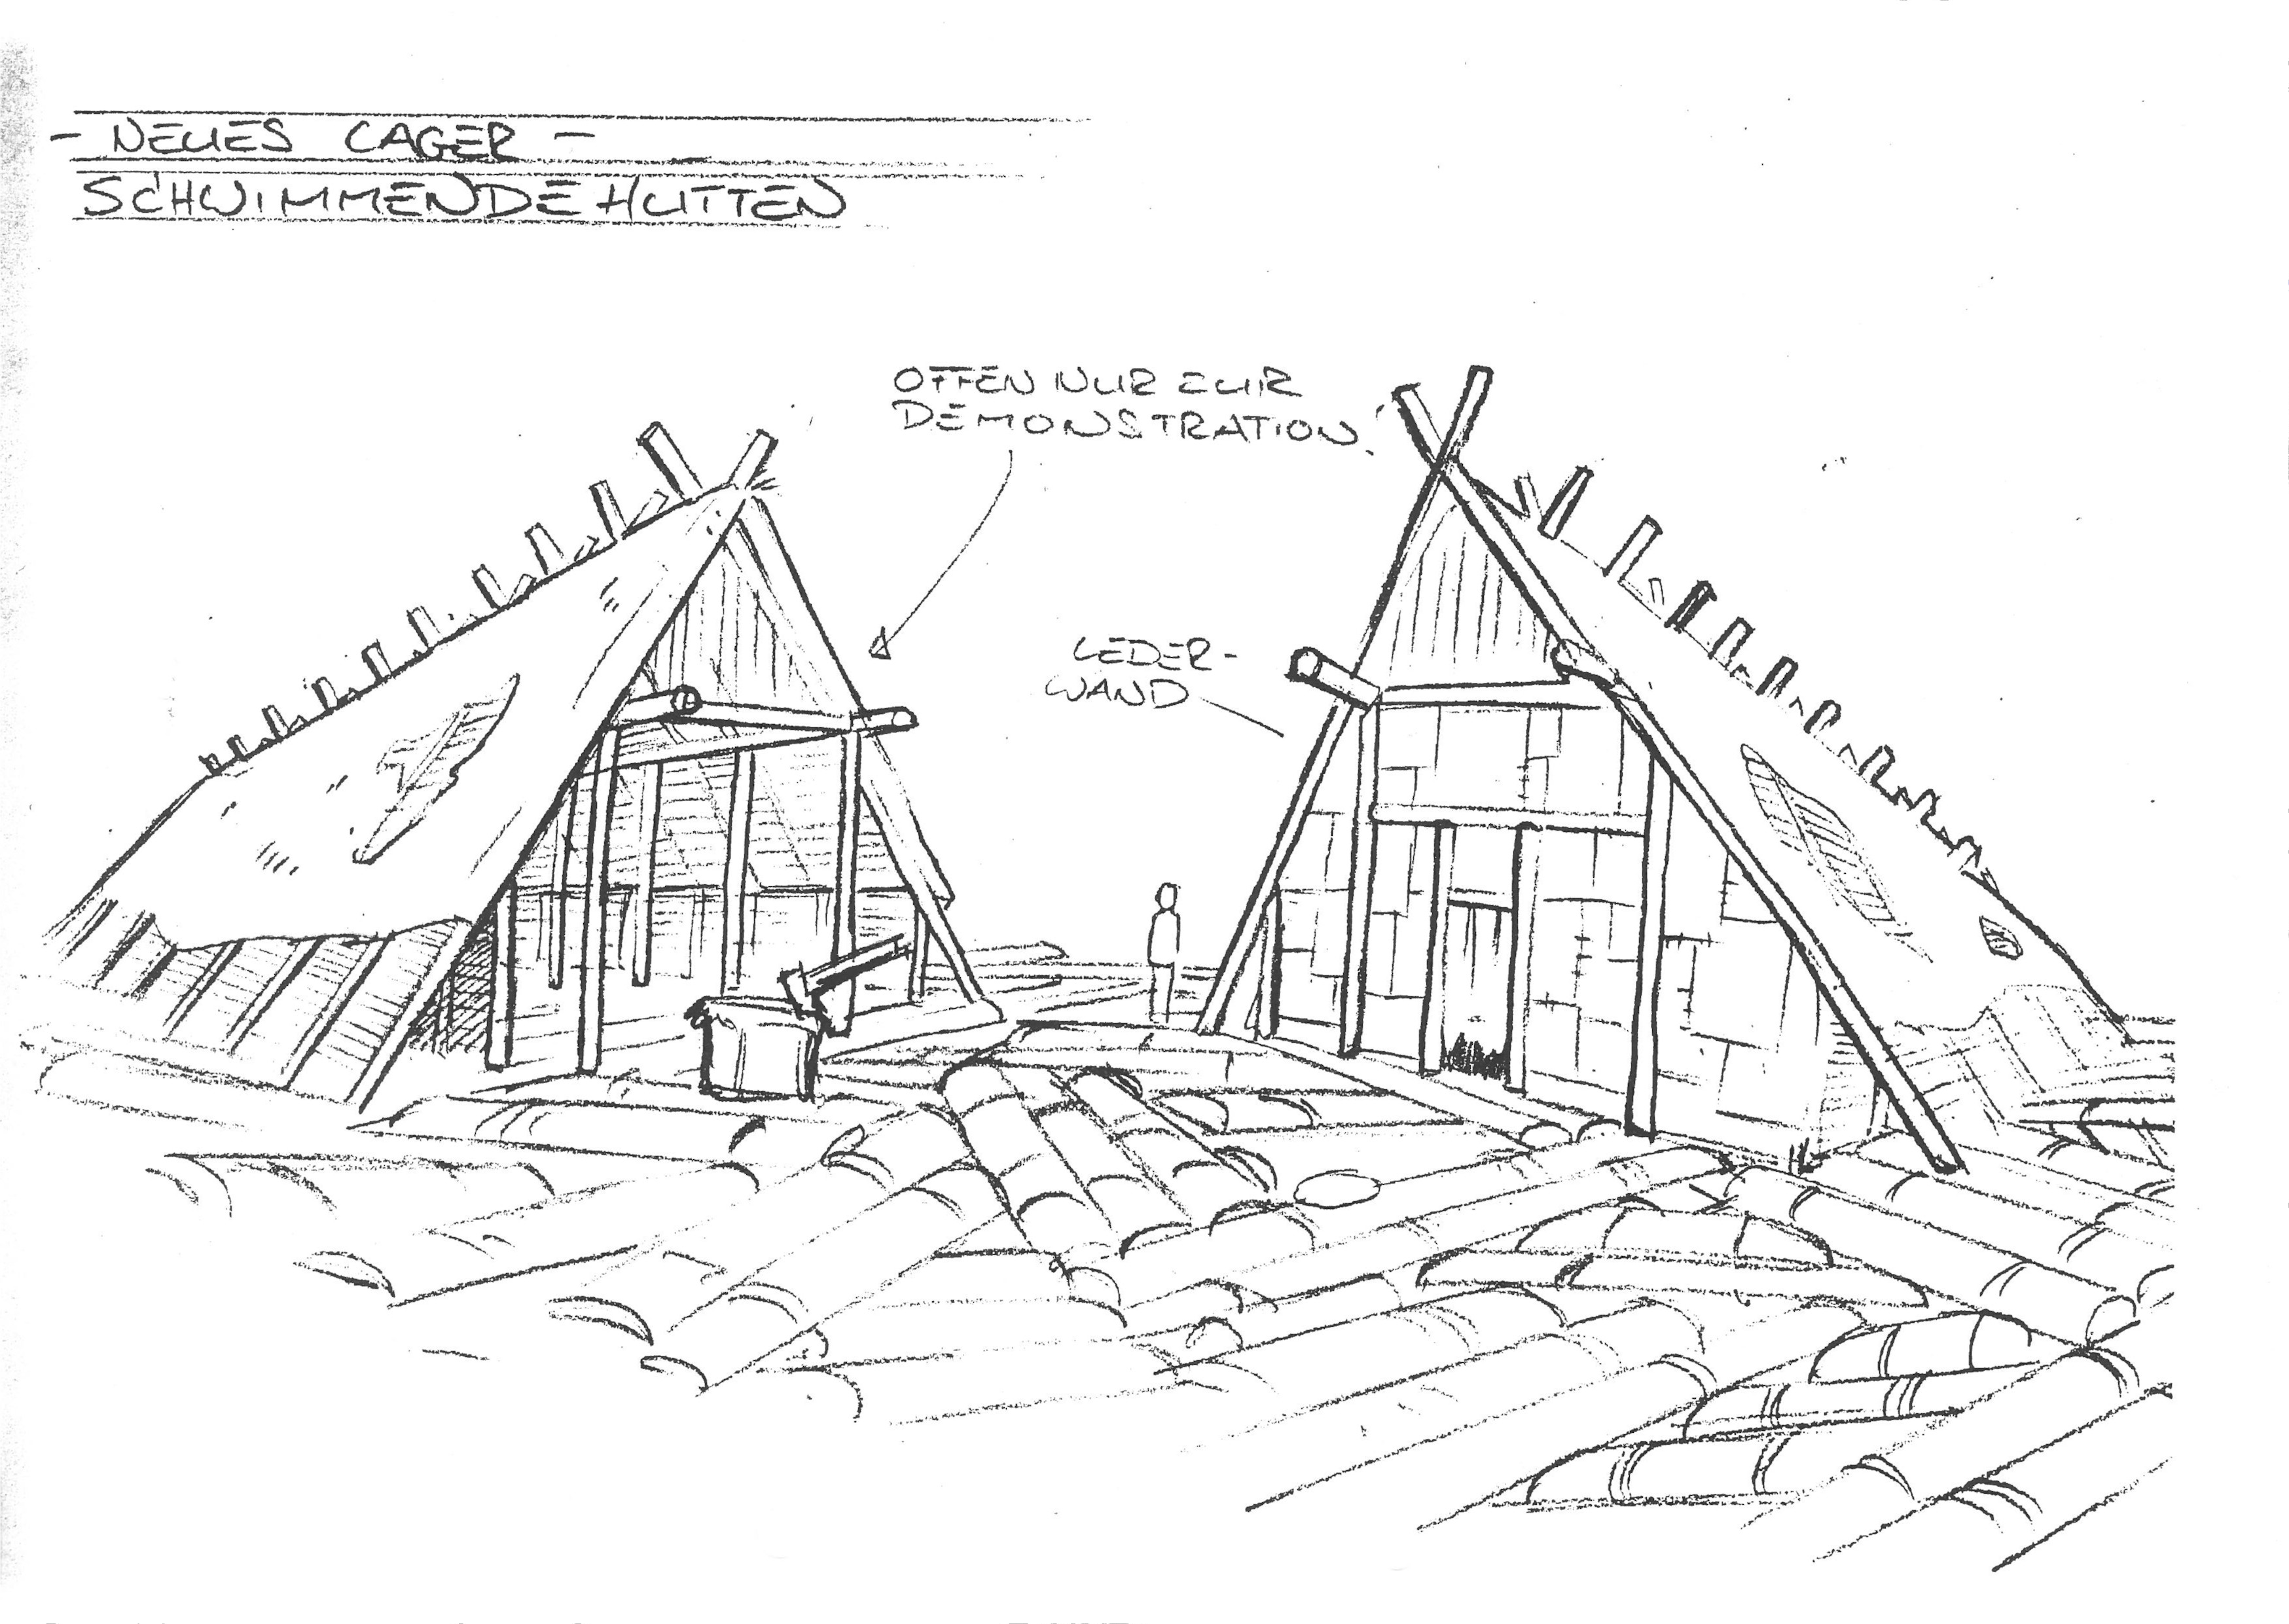 - NEUES LAGER -
SCHWIMMENDE HUTTEN
OFFEN NUR ZUR
DEMONSTRATION!
LEDER-
WAND